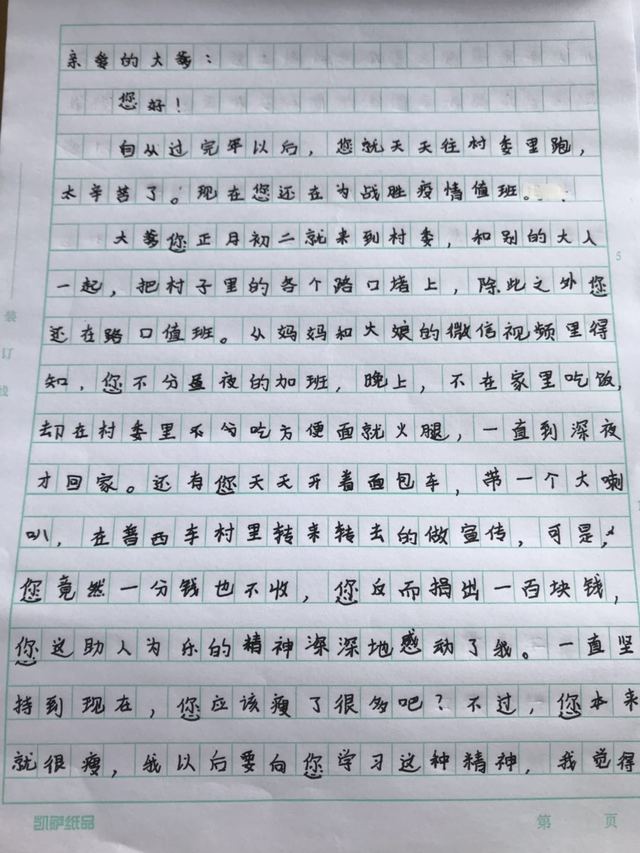 亲爱的大爹：
您好！
自从过完年以后，您就天天往村委里跑，
太辛苦了。现在您还在为战胜疫情值班。
大爹您正月初二就来到村委，和别的大人
一起，把村子里的各个路口堵上，除此之外您
还在路口值班。从妈妈和大娘的微信视频里得
知，您不分昼夜的加班，晚上，不在家里吃饭，
却在村委里不分吃方便面就火腿，一直到深夜
才回家。还有您天天开着面包车，带一个大喇
叭，在普西车村里转来转去的做宣传，可是，
您竟然一分钱也不收，您反而捐出一百块钱，
您这助人为乐的精神深深地感动了我。一直坚
持到现在，您应该瘦了很多吧？不过，您本来
就很瘦，我以后要向您学习这种精神，我觉得
5
装
订
线
凯萨纸品
第 页